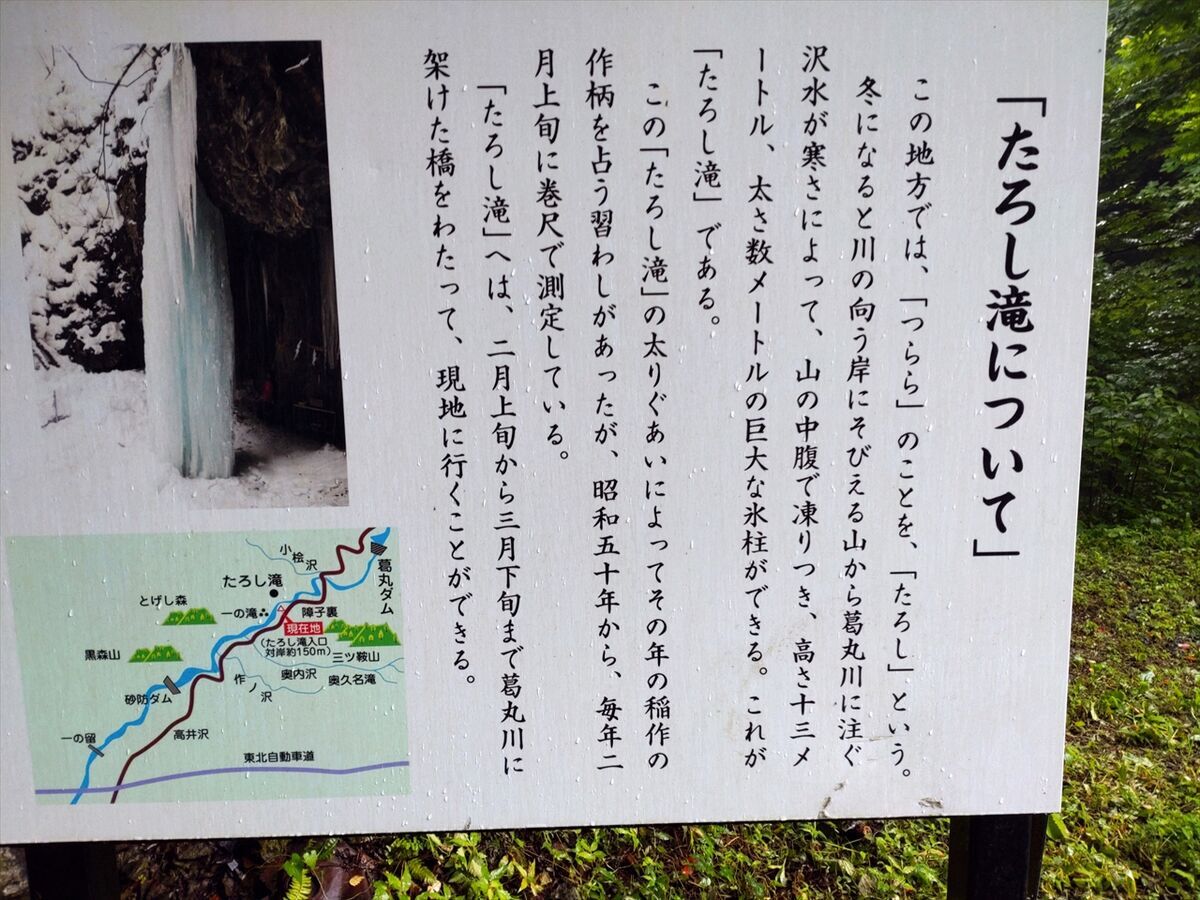 「たろし滝について」
この地方では、「つらら」のことを、「たろし」という。
冬になると川の向う岸にそびえる山から葛丸川に注ぐ
沢水が寒さによって、山の中腹で凍りつき、高さ十三メ
ートル、太さ数メートルの巨大な氷柱ができる。これが
「たろし滝」である。
この「たろし滝」の太りぐあいによってその年の稲作の
作柄を占う習わしがあったが、昭和五十年から、毎年二
月上旬に巻尺で測定している。
「たろし滝」へは、二月上旬から三月下旬まで葛丸川に
架けた橋をわたって、現地に行くことができる。
小桧沢
葛丸ダム
たろし滝
とげし森
一の滝
障子裏
現在地
(たろし滝入口
対岸約150m)
三ツ鞍山
黒森山
奥内沢
奥久名滝
作ノ沢
砂防ダム
一の留
高井沢
東北自動車道